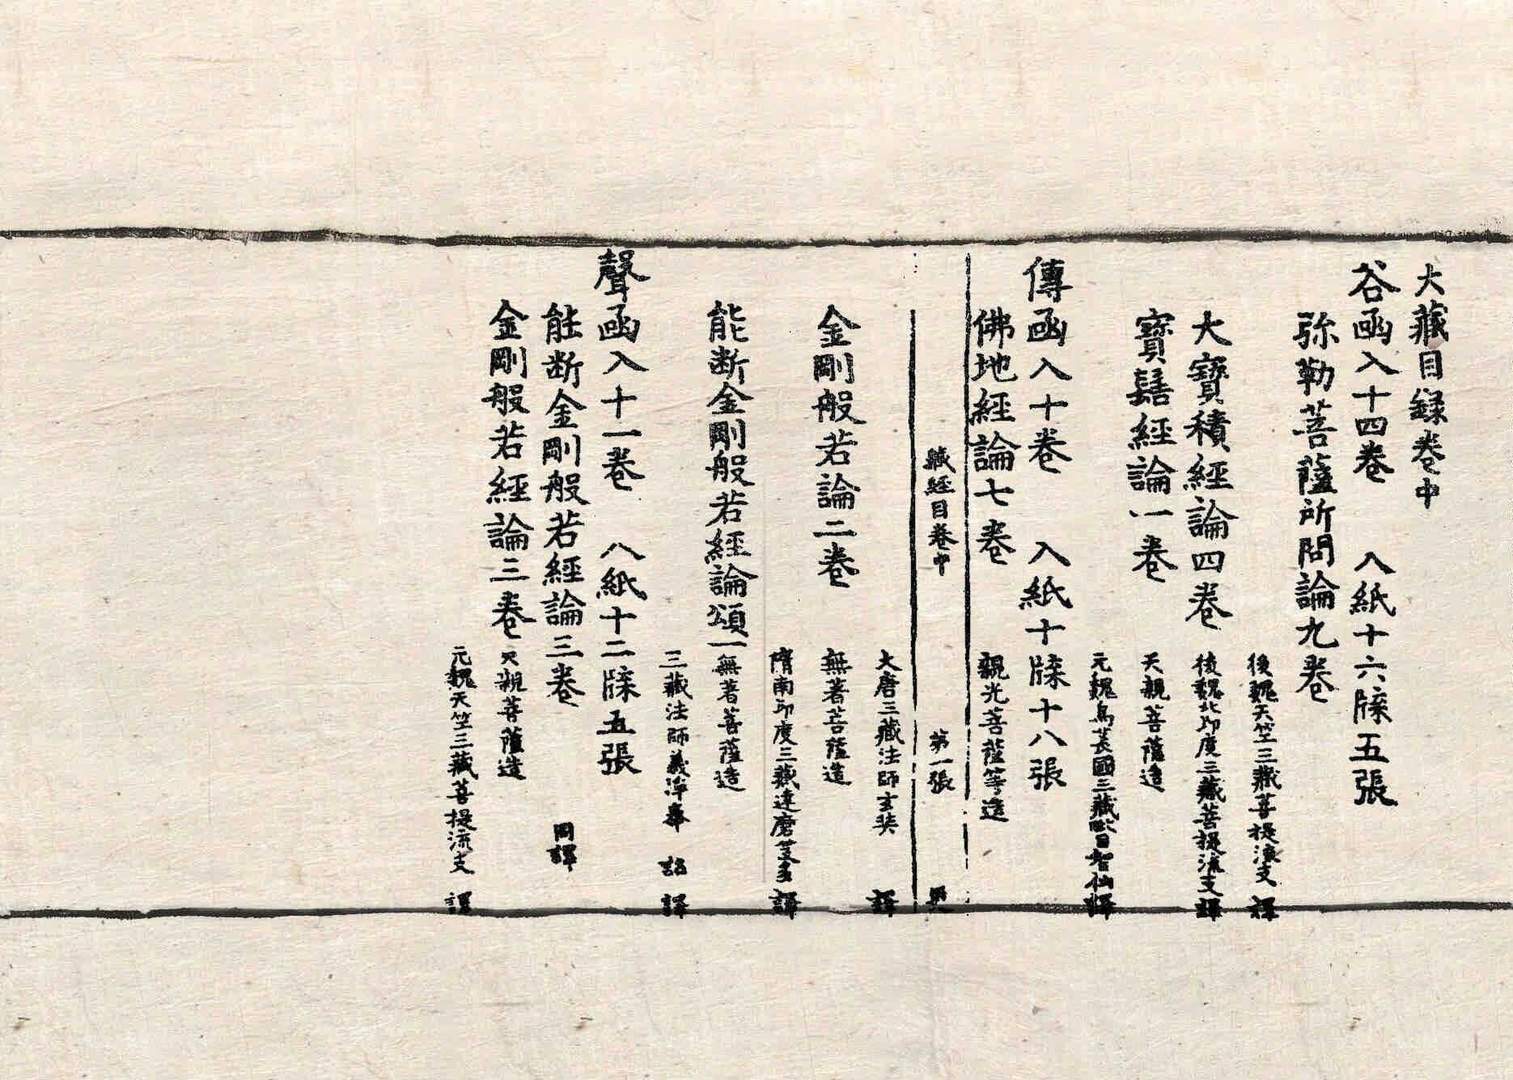 大藏目録卷中
谷函入十四卷 入紙十六牒五張
弥勒菩薩所問論九卷
後魏天竺三藏菩提流支 譯
大寶積經論四卷
後魏北印度三藏菩提流支 譯
寶髻經論一卷
天親菩薩造
元魏烏萇國三藏毗目智仙譯
傳函入十卷 入紙十牒十八張
佛地經論七卷 親光菩薩等造
藏經目卷中 第一張
大唐三藏法師玄奘 譯
金剛般若論二卷 無著菩薩造
隋南印度三藏達磨笈多 譯
能断金剛般若經論頌一 無著菩薩造
三藏法師義淨奉 詔 譯
聲函入十一卷 八紙十二牒五張
能断金剛般若經論三卷 同譯
金剛般若經論三卷 天親菩薩造
元魏天竺三藏菩提流支 譯